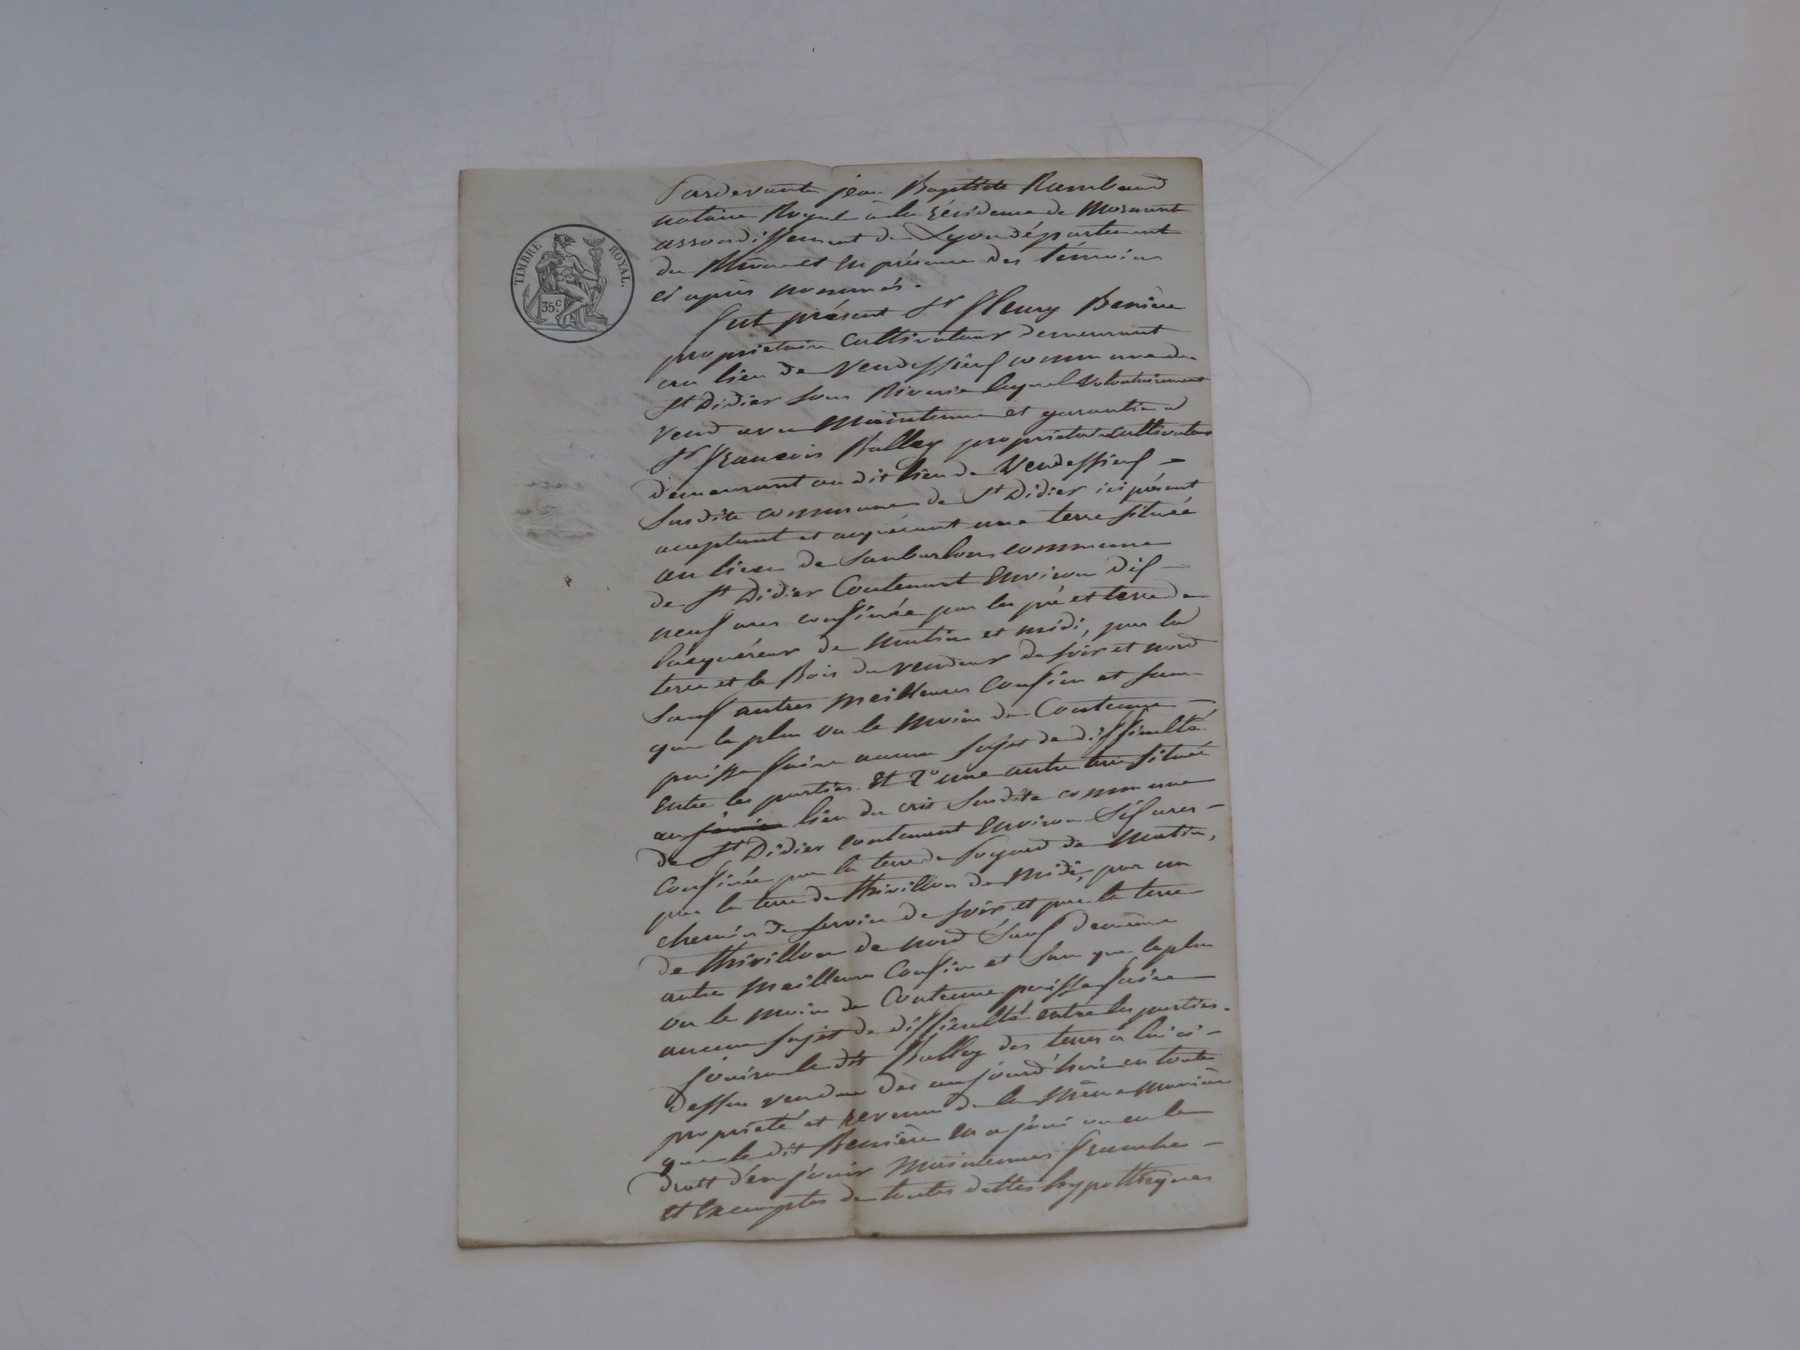 TIMBRE ROYAL.
35c
Pardevant jean Baptiste Rambaud
notaire Royal à la résidence de Mornant
arrondissement de Lyon département
du Rhône et en présence des témoins
ci après nommés.
fut présent Sr fleury Benière
propriétaire cultivateur demeurant
au lieu de Vendessieuf commune de
St Didier sous Riverie lequel volontairement
vend avec Maintenue et garantie a
Sr francois Balley propriétaire cultivateur
demeurant au dit lieu de Vendessieuf
Susdite commune de St Didier ici présent
acceptant et acquérant une terre située
au lieu de commune
de St Didier Contenant Environ dif
neuf ares confinée par les pré et terre de
l'acquéreur de matin et midi, par la
terre et le Bois du vendeur de soir et nord
Sauf autres meilleures Confin et sans
que le plus ou le moins de Contenue
puisse faire aucun sujet de difficulté
Entre les parties. Et 2° une autre terre située
au lieu du crit Susdite commune
de St Didier contenant Environ Sif ares
Confinée par la terre de de Matin,
par la terre de Thivillon de Midi, par un
chemin de service de soir et par la terre
de Thivillon de nord Sauf de même
autre Meilleures Confin et sans que le plus
ou le moins de Contenue puisse faire
aucun sujet de difficulté entre les parties.
jouira le dit Balley des terres a lui ci
dessus vendues dès aujourd'huie en toutes
propriété et revenue de la Même Manière
que le dit Benière en a joui ou eu le
droit d'en jouir Maintenues franches
et Exemptes de toutes dettes hypothèques